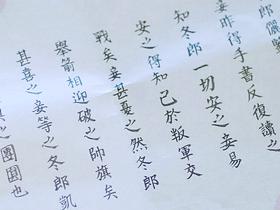 郎儼等
妾昨得手書反復讀之
知冬郎一切安之妾易
安之得知已於敵軍交
戰矣妾甚憂之然冬郎
舉箭相迎破之帥旗矣
甚喜之妾等之冬郎凱
之團圓也